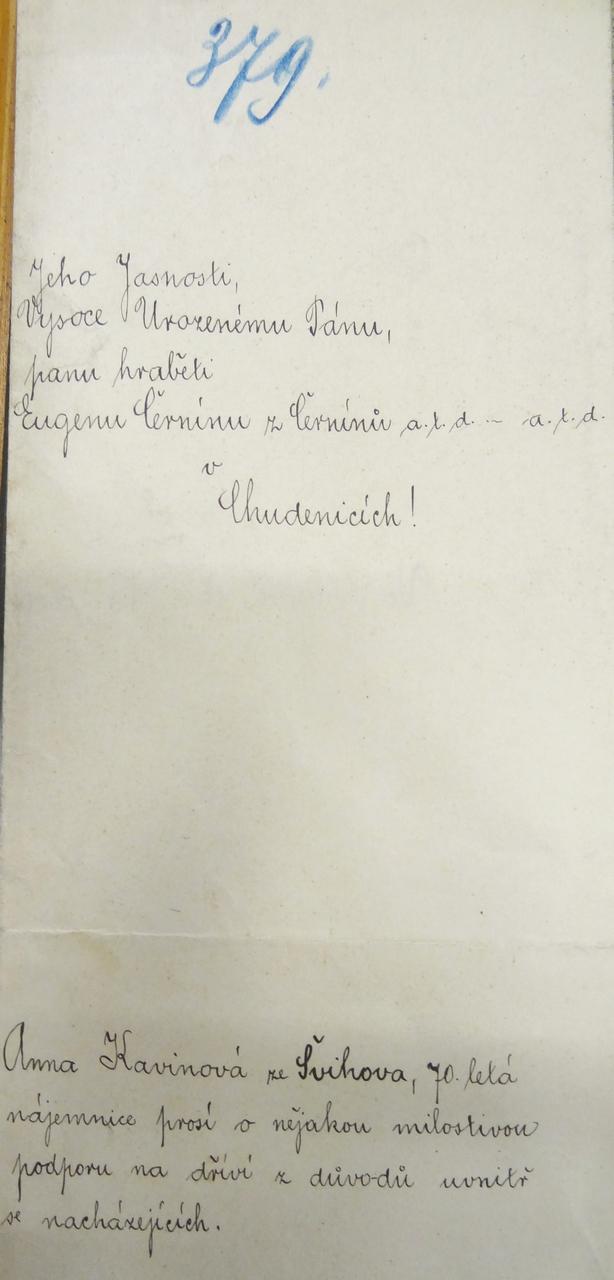 379.
Jeho Jasnosti,
Vysoce Urozenému Pánu,
panu hraběti
Eugenu Černínu z Černínů a.t.d. - a.t.d.
v
Chudenicích!
Anna Kavinová ze Švihova, 70. letá
nájemnice prosí o nějakou milostivou
podporu na dříví z důvodů uvnitř
se nacházejících.